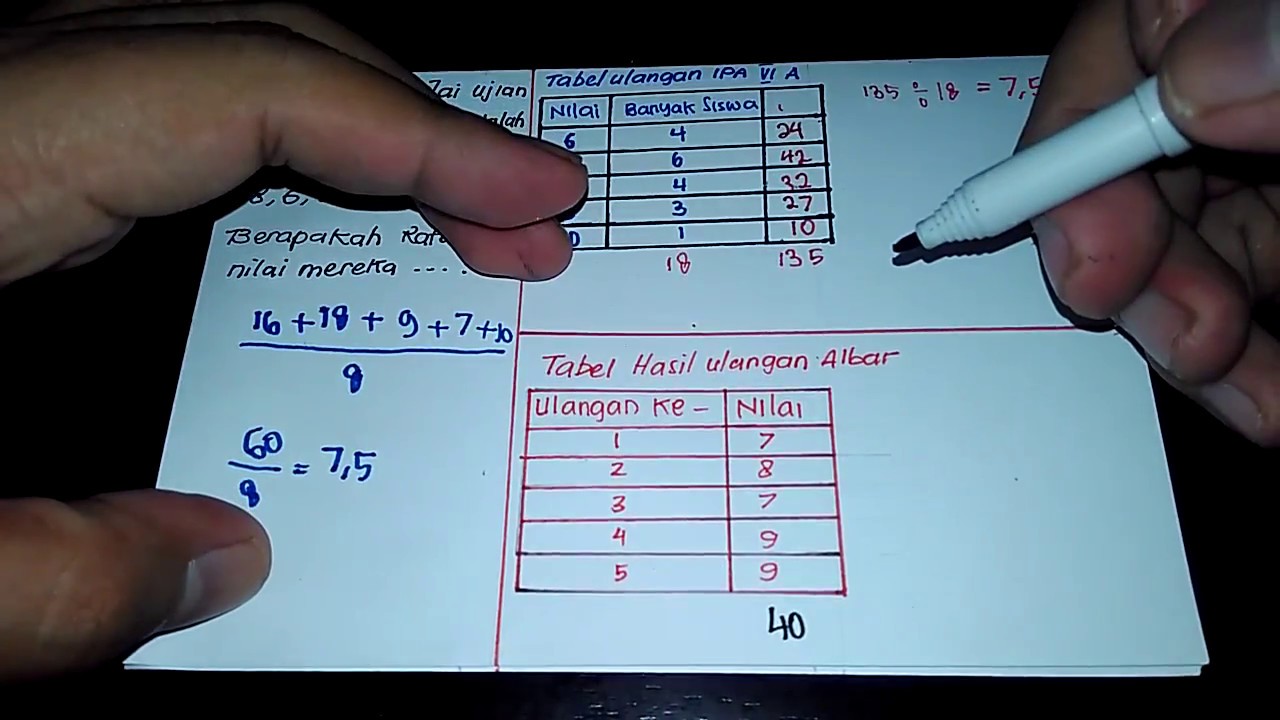 ujian
8, 6,
Berapakah
nilai mereka ....
16 + 18 + 9 + 7 + 10
8
60
8
= 7,5
Tabel ulangan IPA VI A
Nilai Banyak Siswa
6 4 24
6 42
4 32
3 27
0 1 10
18 135
135 ÷ 18 = 7,5
Tabel Hasil ulangan Albar
Ulangan Ke - Nilai
1 7
2 8
3 7
4 9
5 9
40